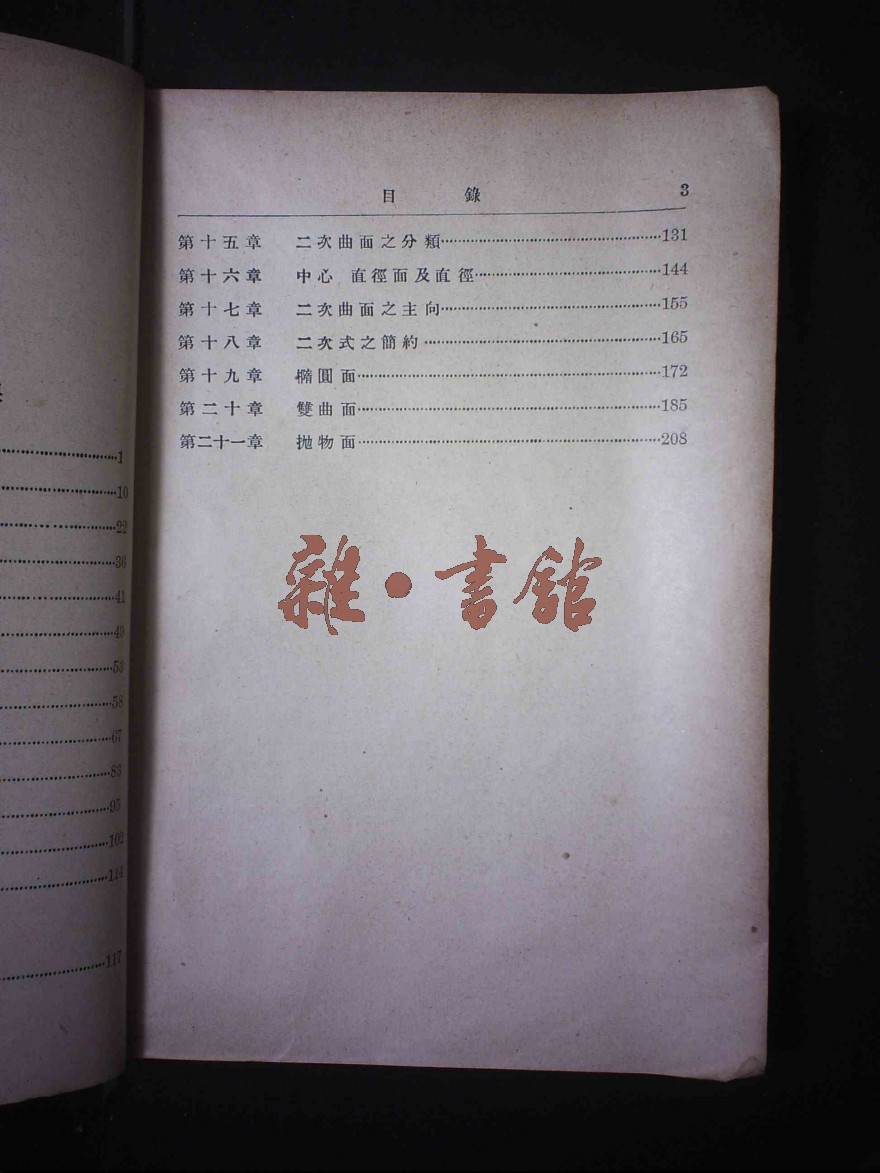 1
10
22
36
41
49
53
58
67
83
95
102
114
117
目錄 3
第十五章 二次曲面之分類·····131
第十六章 中心 直徑面及直徑·····144
第十七章 二次曲面之主向·····155
第十八章 二次式之簡約·····165
第十九章 橢圓面·····172
第二十章 雙曲面·····185
第二十一章 拋物面·····208
雜·書館